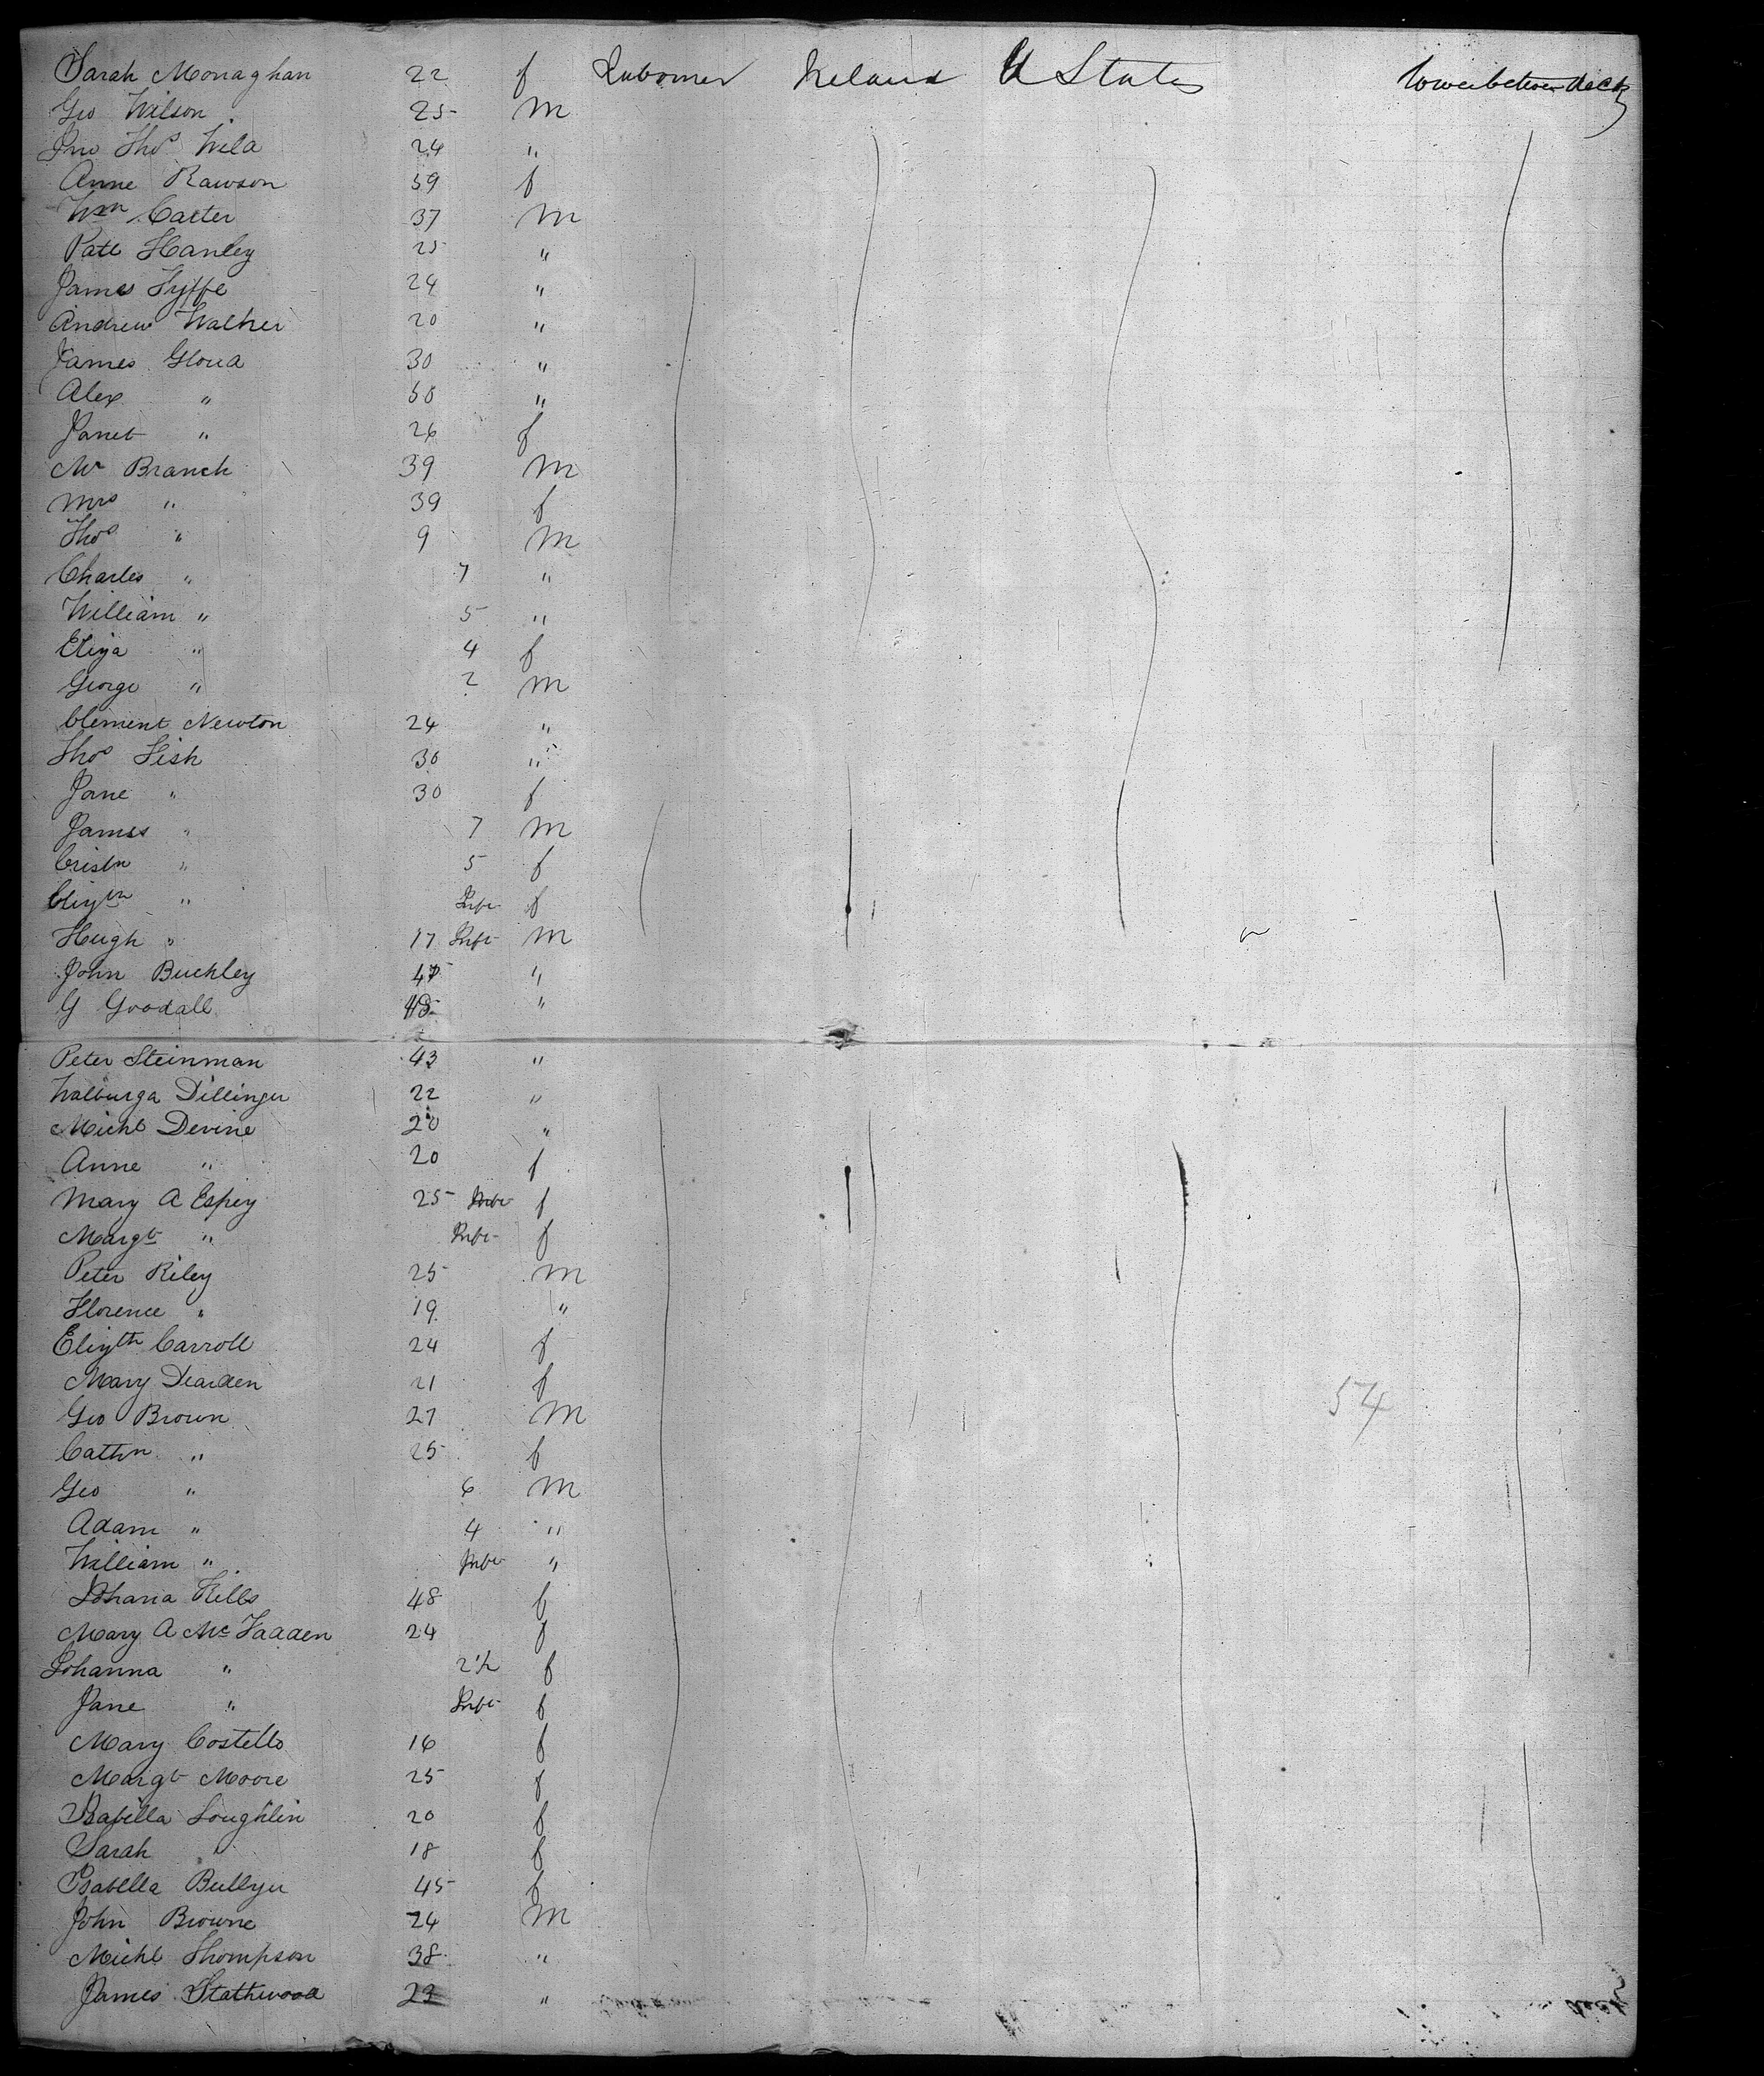 Sarah Monaghan 22 f Labourer Ireland U States lower between deck
Geo Wilson 25 m
Jno Thos 24 "
Anne Rawson 39 f
Wm Carter 37 m
Patk Hanley 25 "
James Fyffe 24 "
Andrew Walker 20 "
James 30 "
Alex " "
Janet " 26 f
Mr Branch 39 m
Mrs " 39 f
Thos " 9 m
Charles " 7 "
William " 5 "
Eliza " 4 f
George " 2 m
Clement Newton 24 "
Thos Fish 30 "
Jane " 30 f
James " 7 m
" 5 f
Elizth " Inft f
Hugh " 17 Inft m
John Buckley "
G Goodall "
Peter Steinman 43 "
Walburga Dillinger 22 "
Michl Devine 20 "
Anne " 20 f
Mary A Espey 25 f
Margt " Inft f
Peter Riley 25 m
Florence " 19 "
Elizth Carroll 24 f
Mary Dearden 21 f
Geo Brown 27 m
54
Cathn " 25 f
Geo " 6 m
Adam " 4 "
William " Inft "
48 f
Mary A Mc Fadden 24 f
Johanna " 2½ f
Jane " Inft f
Mary Costello 16 f
Margt Moore 25 f
Isabella Loughlin 20 f
Sarah " 18 f
Isabella 45 f
John Browne 24 m
Michl Thompson 38 "
James 23 "
deck